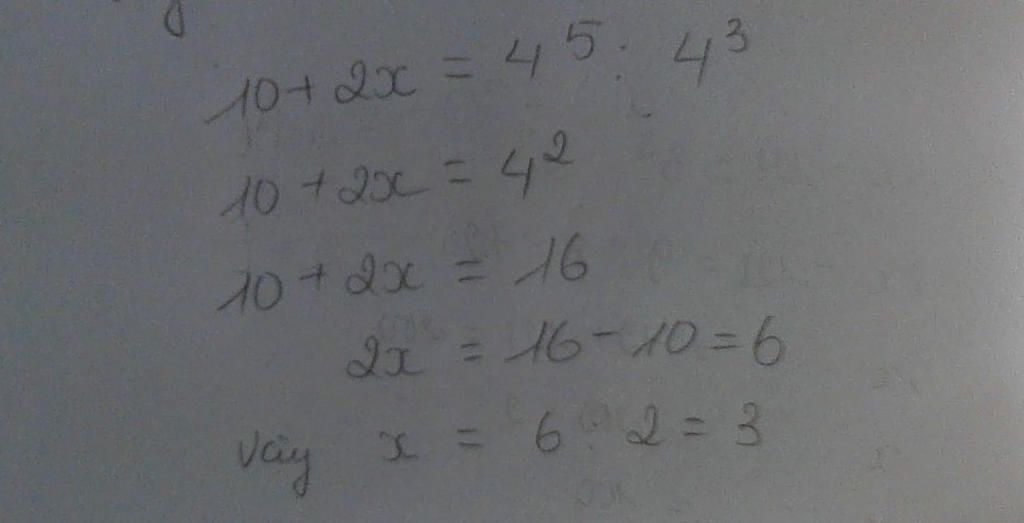 10 + 2x = 4⁵ : 4³
10 + 2x = 4²
10 + 2x = 16
2x = 16 - 10 = 6
Vậy x = 6 : 2 = 3